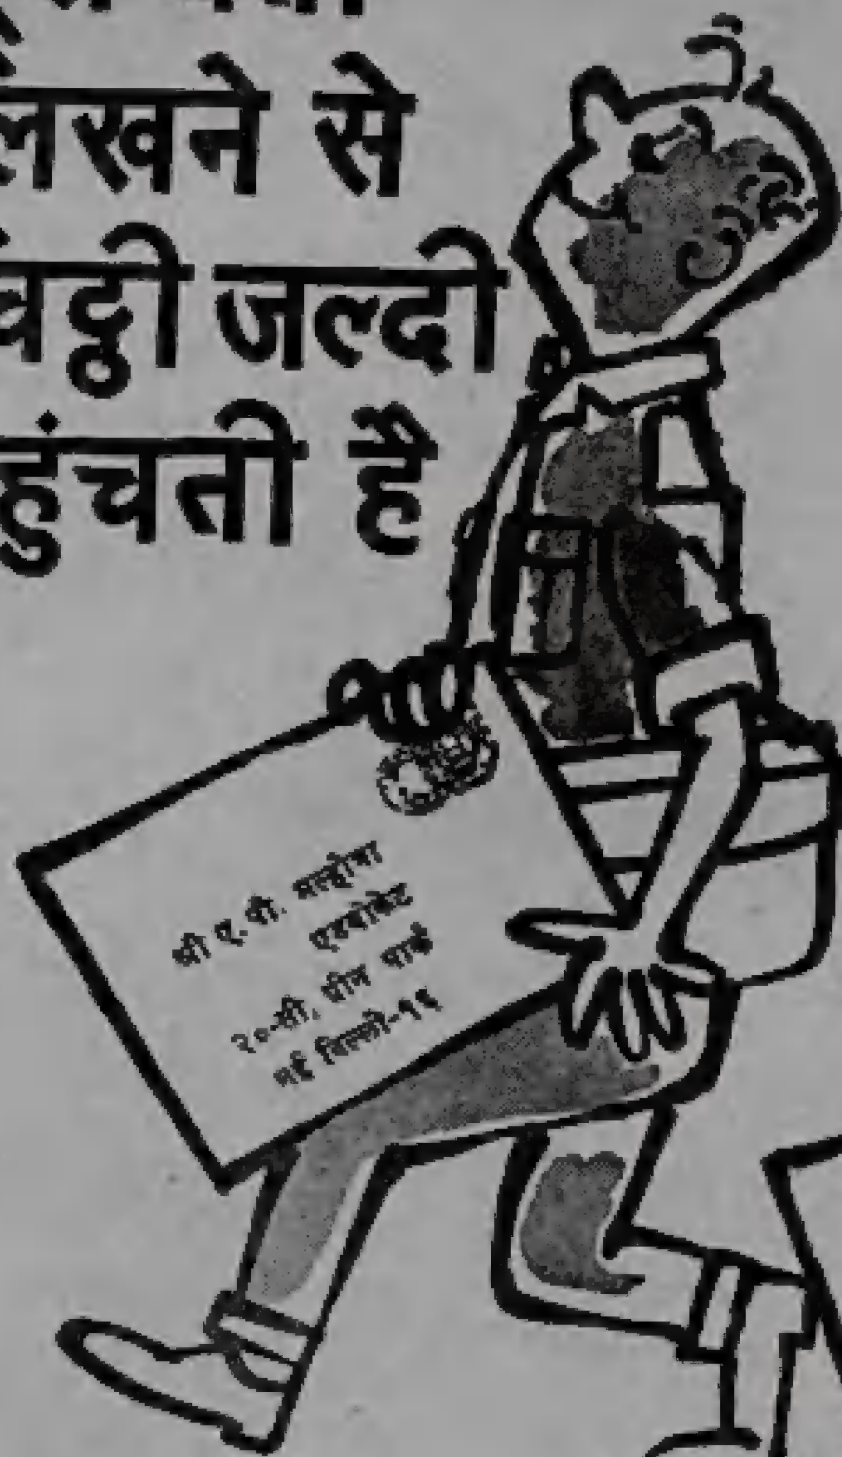 लखने से
चट्ठी जल्दी
हुंचती है
श्री ए. पी. मल्होत्रा
एडवोकेट
२०-सी, ग्रीन पार्क
नई दिल्ली-१६